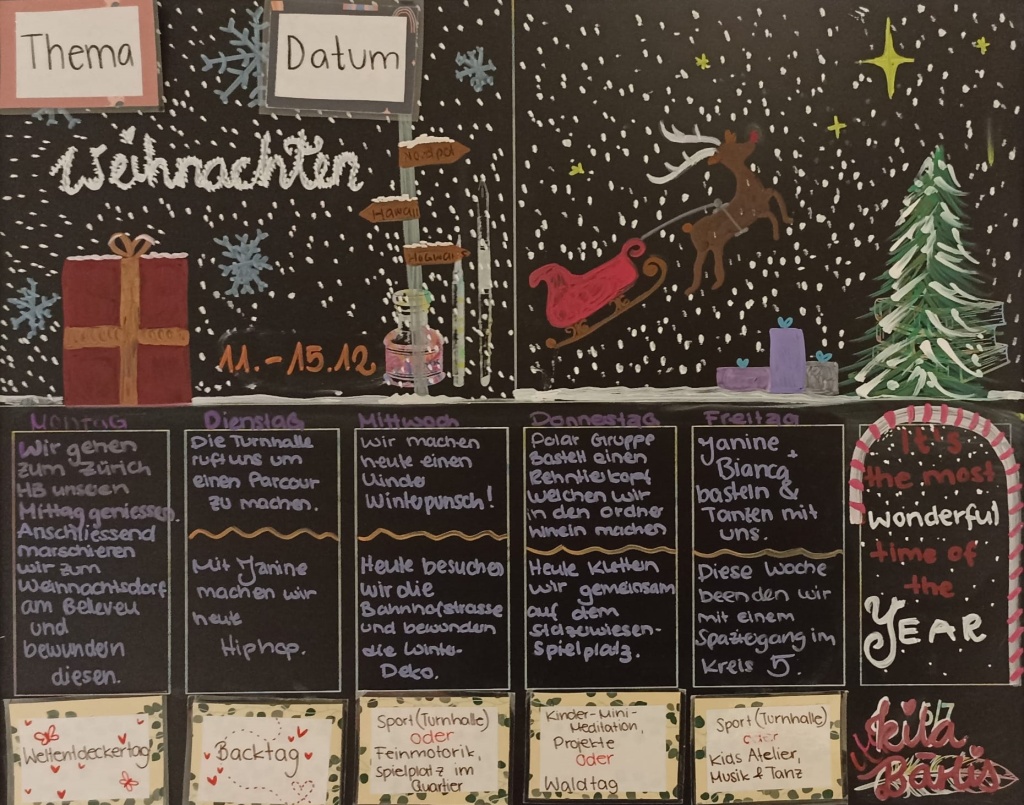 Thema
Datum
Weihnachten
Nordpol
Hawaii
11.-15.12
Montag
Wir gehen
zum Zürich
HB unseren
Mittag geniessen.
Anschliessend
marschieren
wir zum
Weihnachtsdorf
am Belleveu
und
bewundern
diesen.
Dienstag
Die Turnhalle
ruft uns um
einen Parcour
zu machen.
Mit Yanine
machen wir
heute
Hiphop.
Mittwoch
Wir machen
heute einen
Winterpunsch!
Heute besuchen
wir die
Bahnhofstrasse
und bewundern
die Winter-
Deko.
Donnestag
Polar Gruppe
Bastelt einen
Rentierkopf
welchen wir
in den ordner
hinein machen
Heute Klettern
wir gemeinsam
auf dem
Spielplatz.
Freitag
Yanine +
Bianca
basteln &
Tanzen mit
uns.
Diese Woche
beenden wir
mit einem
Spaziergang im
Kreis 5.
It's
the most
wonderful
time of
the
YEAR
Weltentdeckertag
Backtag
Sport (Turnhalle)
oder
Feinmotorik,
Spielplatz im
Quartier
Kinder-Mini-
Meditation,
Projekte
oder
Waldtag
Sport (Turnhalle)
oder
Kias Atelier,
Musik & Tanz
Kita